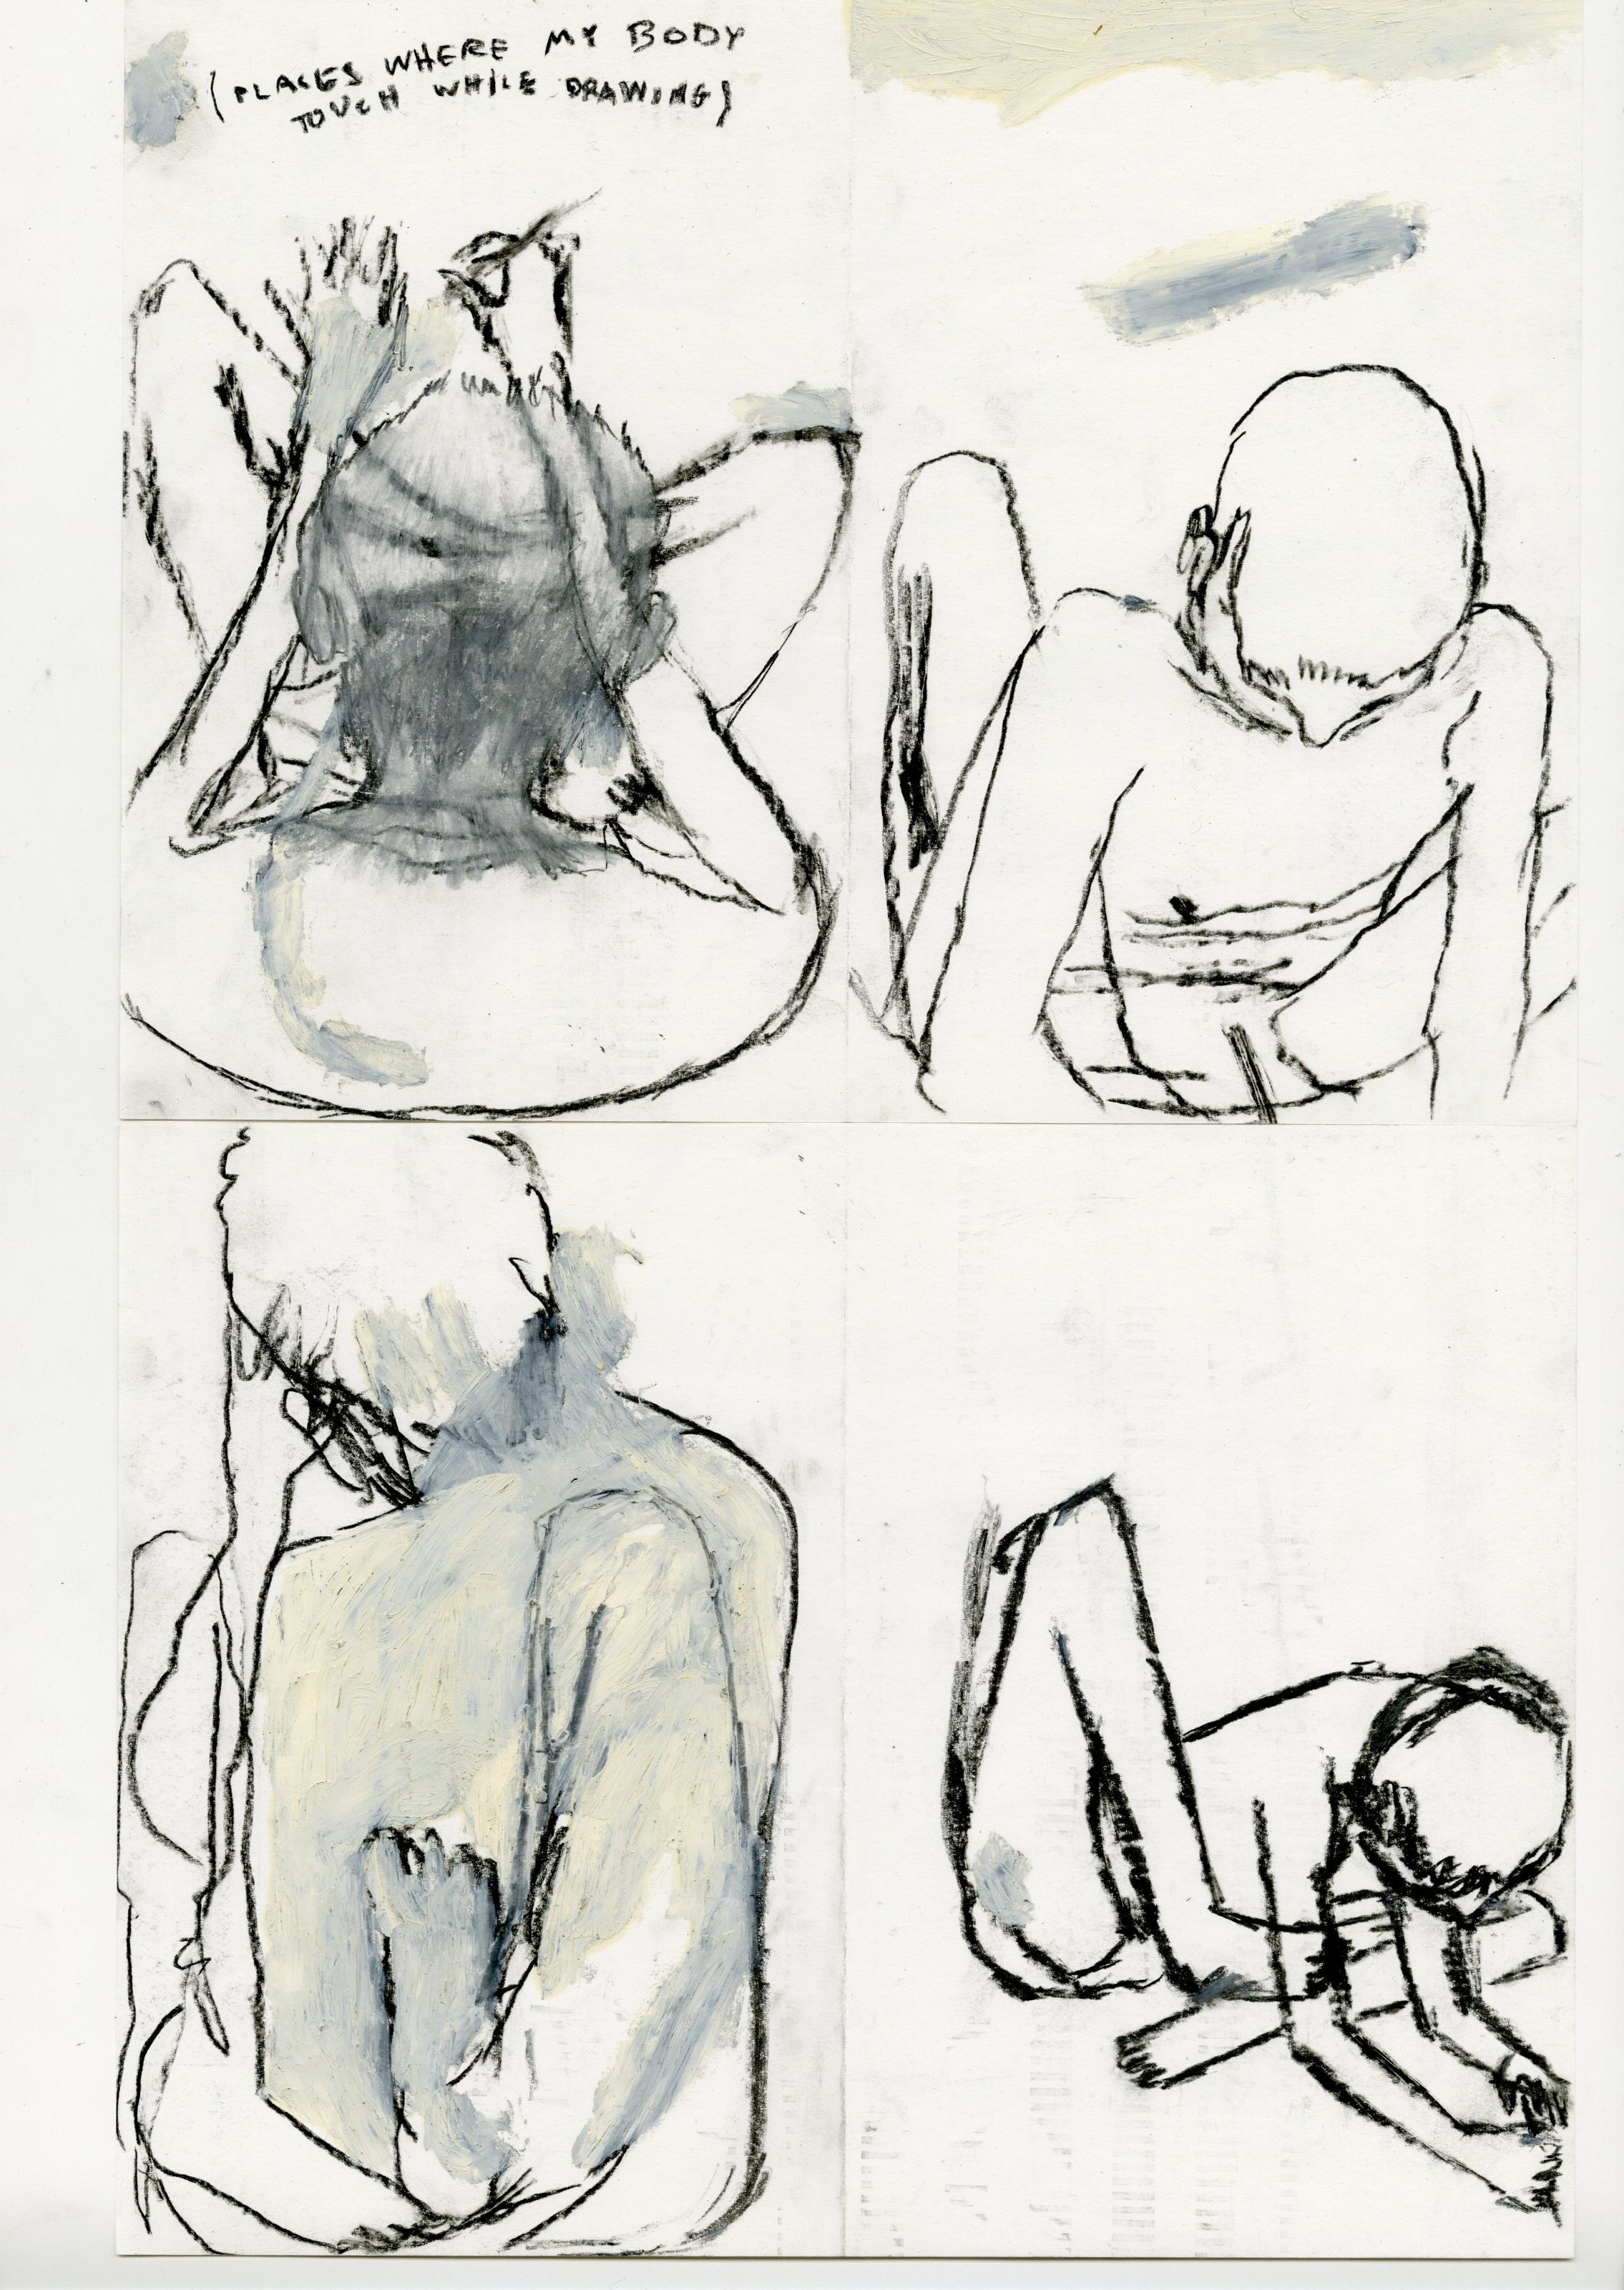 (PLACES WHERE MY BODY
TOUCH WHILE DRAWING)